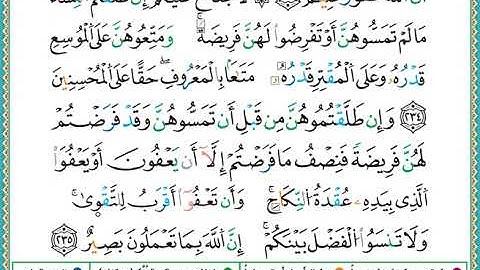 أَنَّ اللَّهَ غَفُورٌ حَلِيمٌ لَا جُنَاحَ عَلَيْكُمْ إِن طَلَّقْتُمُ النِّسَاءَ
مَا لَمْ تَمَسُّوهُنَّ أَوْ تَفْرِضُوا لَهُنَّ فَرِيضَةً ۚ وَمَتِّعُوهُنَّ عَلَى الْمُوسِعِ
قَدْرُهُ وَعَلَى الْمُقْتِرِ قَدْرُهُ ۖ مَتَاعًا بِالْمَعْرُوفِ ۖ حَقًّا عَلَى الْمُحْسِنِينَ
﴿٢٣٤﴾ وَإِن طَلَّقْتُمُوهُنَّ مِن قَبْلِ أَن تَمَسُّوهُنَّ وَقَدْ فَرَضْتُمْ
لَهُنَّ فَرِيضَةً فَنِصْفُ مَا فَرَضْتُمْ إِلَّا أَن يَعْفُونَ أَوْ يَعْفُوَا
الَّذِي بِيَدِهِ عُقْدَةُ النِّكَاحِ ۚ وَأَن تَعْفُوا أَقْرَبُ لِلتَّقْوَىٰ ۚ
وَلَا تَنسَوُا الْفَضْلَ بَيْنَكُمْ ۚ إِنَّ اللَّهَ بِمَا تَعْمَلُونَ بَصِيرٌ ﴿٢٣٥﴾